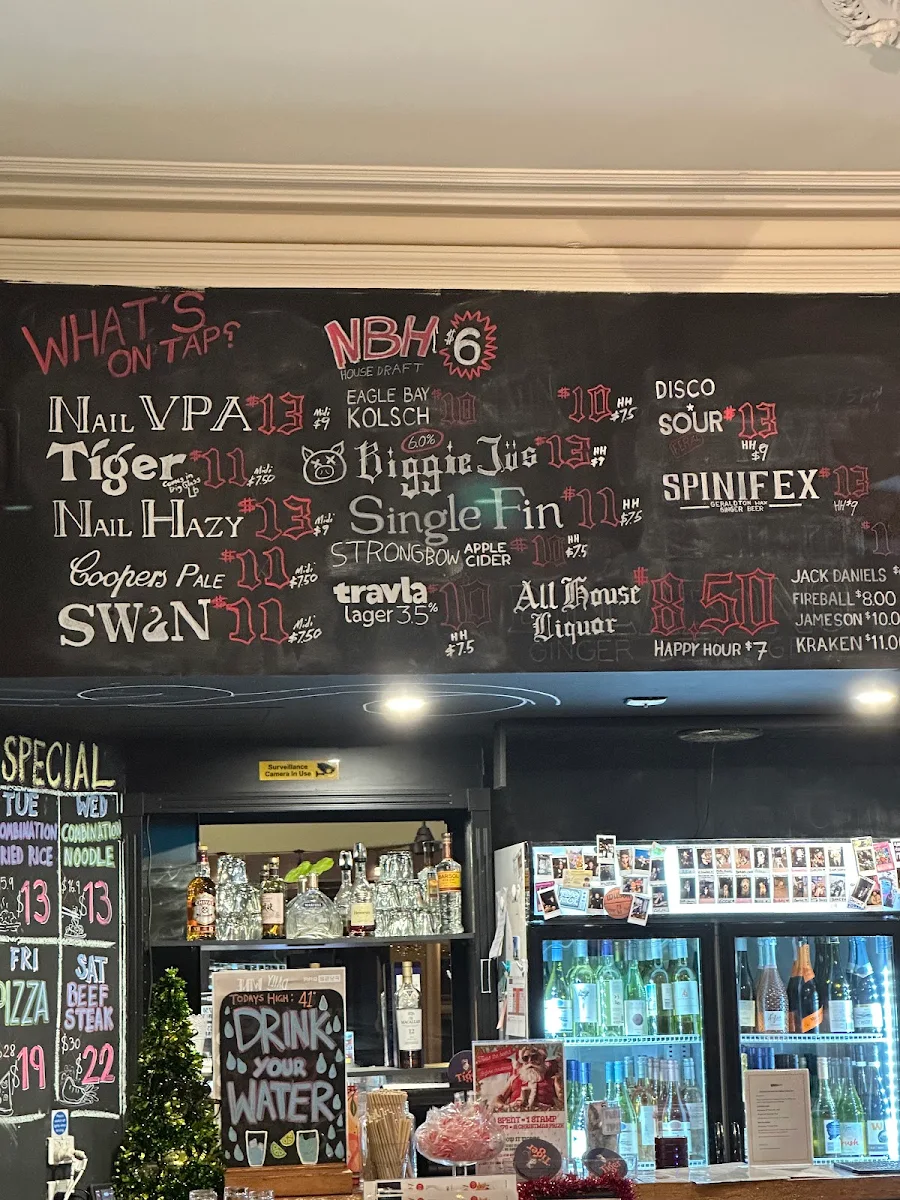 WHAT'S
ON TAP?
NAIL VPA $13 Midi $9
Tiger $11 Midi $7.50
Comes in
Big Glass
NAIL HAZY $13 Midi $9
Coopers PALE $11 Midi $7.50
SWAN $11 Midi $7.50
NBH $6
HOUSE DRAFT
EAGLE BAY
KOLSCH $10 $10 HH $7.5
6.0%
Biggie Jüs $13 HH $9
Single Fin $11 HH $7.5
STRONGBOW APPLE CIDER $10 HH $7.5
travla
lager 3.5% 10
HH
$7.5
DISCO
SOUR $13
HH
$9
SPINIFEX $13
GERALDTON WAX
GINGER BEER
HH $9
All House
Liquor $8.50
HAPPY HOUR $7
JACK DANIELS $
FIREBALL $8.00
JAMESON $10.0
KRAKEN $11.0
SPECIAL
TUE
OMBINATION
RIED RICE
5.9 $13
WED
COMBINATION
NOODLE
$16.9 $13
FRI
PIZZA
28 $19
SAT
BEEF
STEAK
$30 22
Surveillance
Camera in Use
TODAYS HIGH: 41°
DRINK
YOUR
WATER
SPENT = 1 STAMP